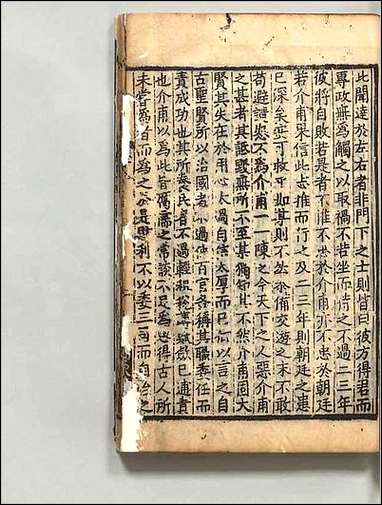 此聞達於左右者非門下之士則皆曰彼方得君而
專政無爲觸之以取禍不若坐而待之不過二三年
彼將自敗若是者不惟不忠於介甫亦不忠於朝廷
若介甫果信此志推而行之及二三年則朝廷之患
已深矣安可救乎如某則不然忝備交遊之末不敢
苟避譴怒不爲介甫一一陳之今天下之人惡介甫
之甚者其詆毀無所不至某獨知其不然介甫固大
賢其失在於用心太過自信太厚而已何以言之自
古聖賢所以治國者不過使百官各稱其職委任而
責成功也其所養民者不過輕租稅薄賦斂已逋責
也介甫以爲此皆腐儒之常談不足爲思得古人所
未嘗爲者而爲之於是財利不以委三司而自治之